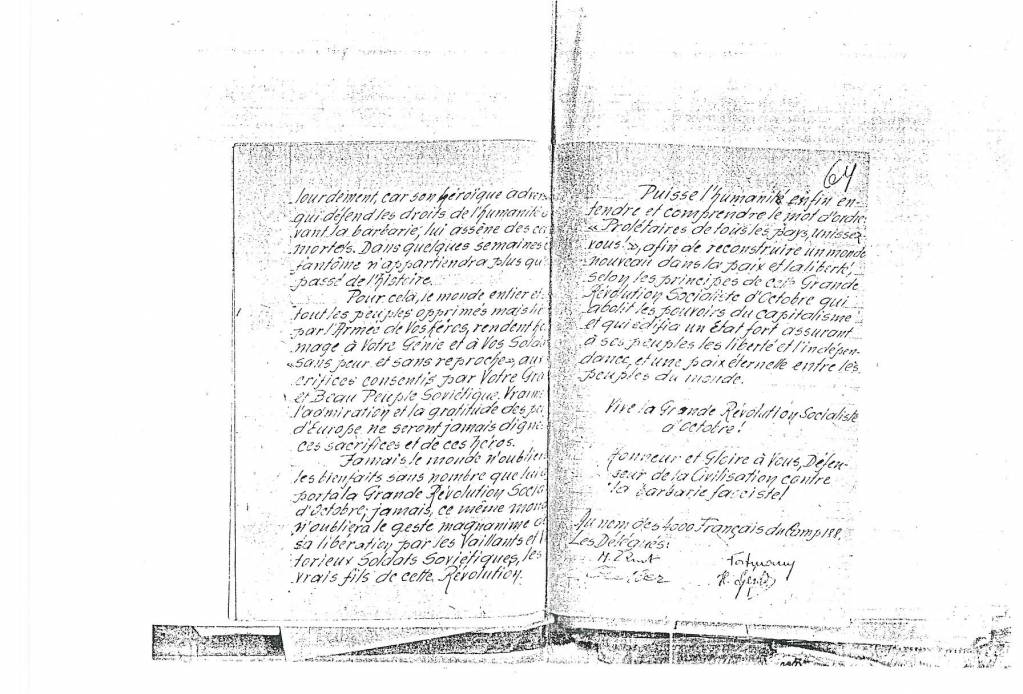 lourdement, car son héroïque advers
qui défend les droits de l'humanité
vant la barbarie, lui assène des co
mortels. Dans quelques semaines
fantôme n'appartiendra plus qu
passé de l'histoire.
Pour cela, le monde entier et
tout les peuples opprimés mais li
par l'Armée de Vos féros, rendent
mage à Votre Génie et à Vos Solda
«sans peur et sans reproche», aux
crifices consentis par Votre Gra
et Beau Peuple Soviétique. Vraim
l'admiration et la gratitude des pe
d'Europe ne seront jamais digne
ces sacrifices et de ces héros.
Jamais le monde n'oublier
les bienfaits sans nombre que lui
porta la Grande Révolution Socia
d'Octobre; jamais, ce même mond
n'oubliera le geste magnanime d
sa libération par les Vaillants et
torieux Soldats Soviétiques, les
vrais fils de cette Révolution.
64
Puisse l'humanité enfin en-
tendre et comprendre le mot d'ordre
« Prolétaires de tous les pays, unissez
vous!», afin de reconstruire un monde
nouveau dans la paix et la liberté,
selon les principes de cette Grande
Révolution Socialiste d'Octobre qui
abolit les pouvoirs du capitalisme
et qui édifia un Etat fort assurant
à ses peuples les liberté et l'indépen-
dance, et une paix éternelle entre les
peuples du monde.
Vive la Grande Révolution Socialiste
d'Octobre!
Honneur et Gloire à Vous, Défen-
seur de la Civilisation contre
la barbarie fasciste!
Au nom des 4000 Français du Camp 188,
Les Délégués: